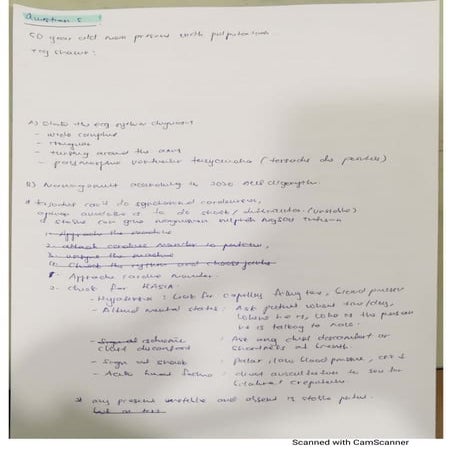 Question 5
50 year old man present with palpitations
ECG shows :
A) State the ecg rhythm diagnosis
- wide complex
- irregular
- twisting around the axis
- polymorphic ventricular tachycardia (torsades de pointes)
B) Management according to 2020 algorythm.
* can't do synchronized cardioversion,
to do shock / (unstable)
if stable can give magnesium sulphate
1. Approach the machine
2. attach cardiac monitor to patient,
3. the machine
4. Check the rhythm and
1. Approach cardiac monitor.
2. Check for HASIA
- Hypotension : Look for capillary filling time, blood pressure
- Altered mental status : Ask patient about time/day,
where he is, who is the person
he is talking to now.
- ischemic : Ask any chest discomfort or
chest discomfort shortness of breath.
- Sign of shock : Pallor, low blood pressure,
- Acute heart failure : chest auscultation to see for
bilateral crepitations
3) any present unstable and absent is stable patient.